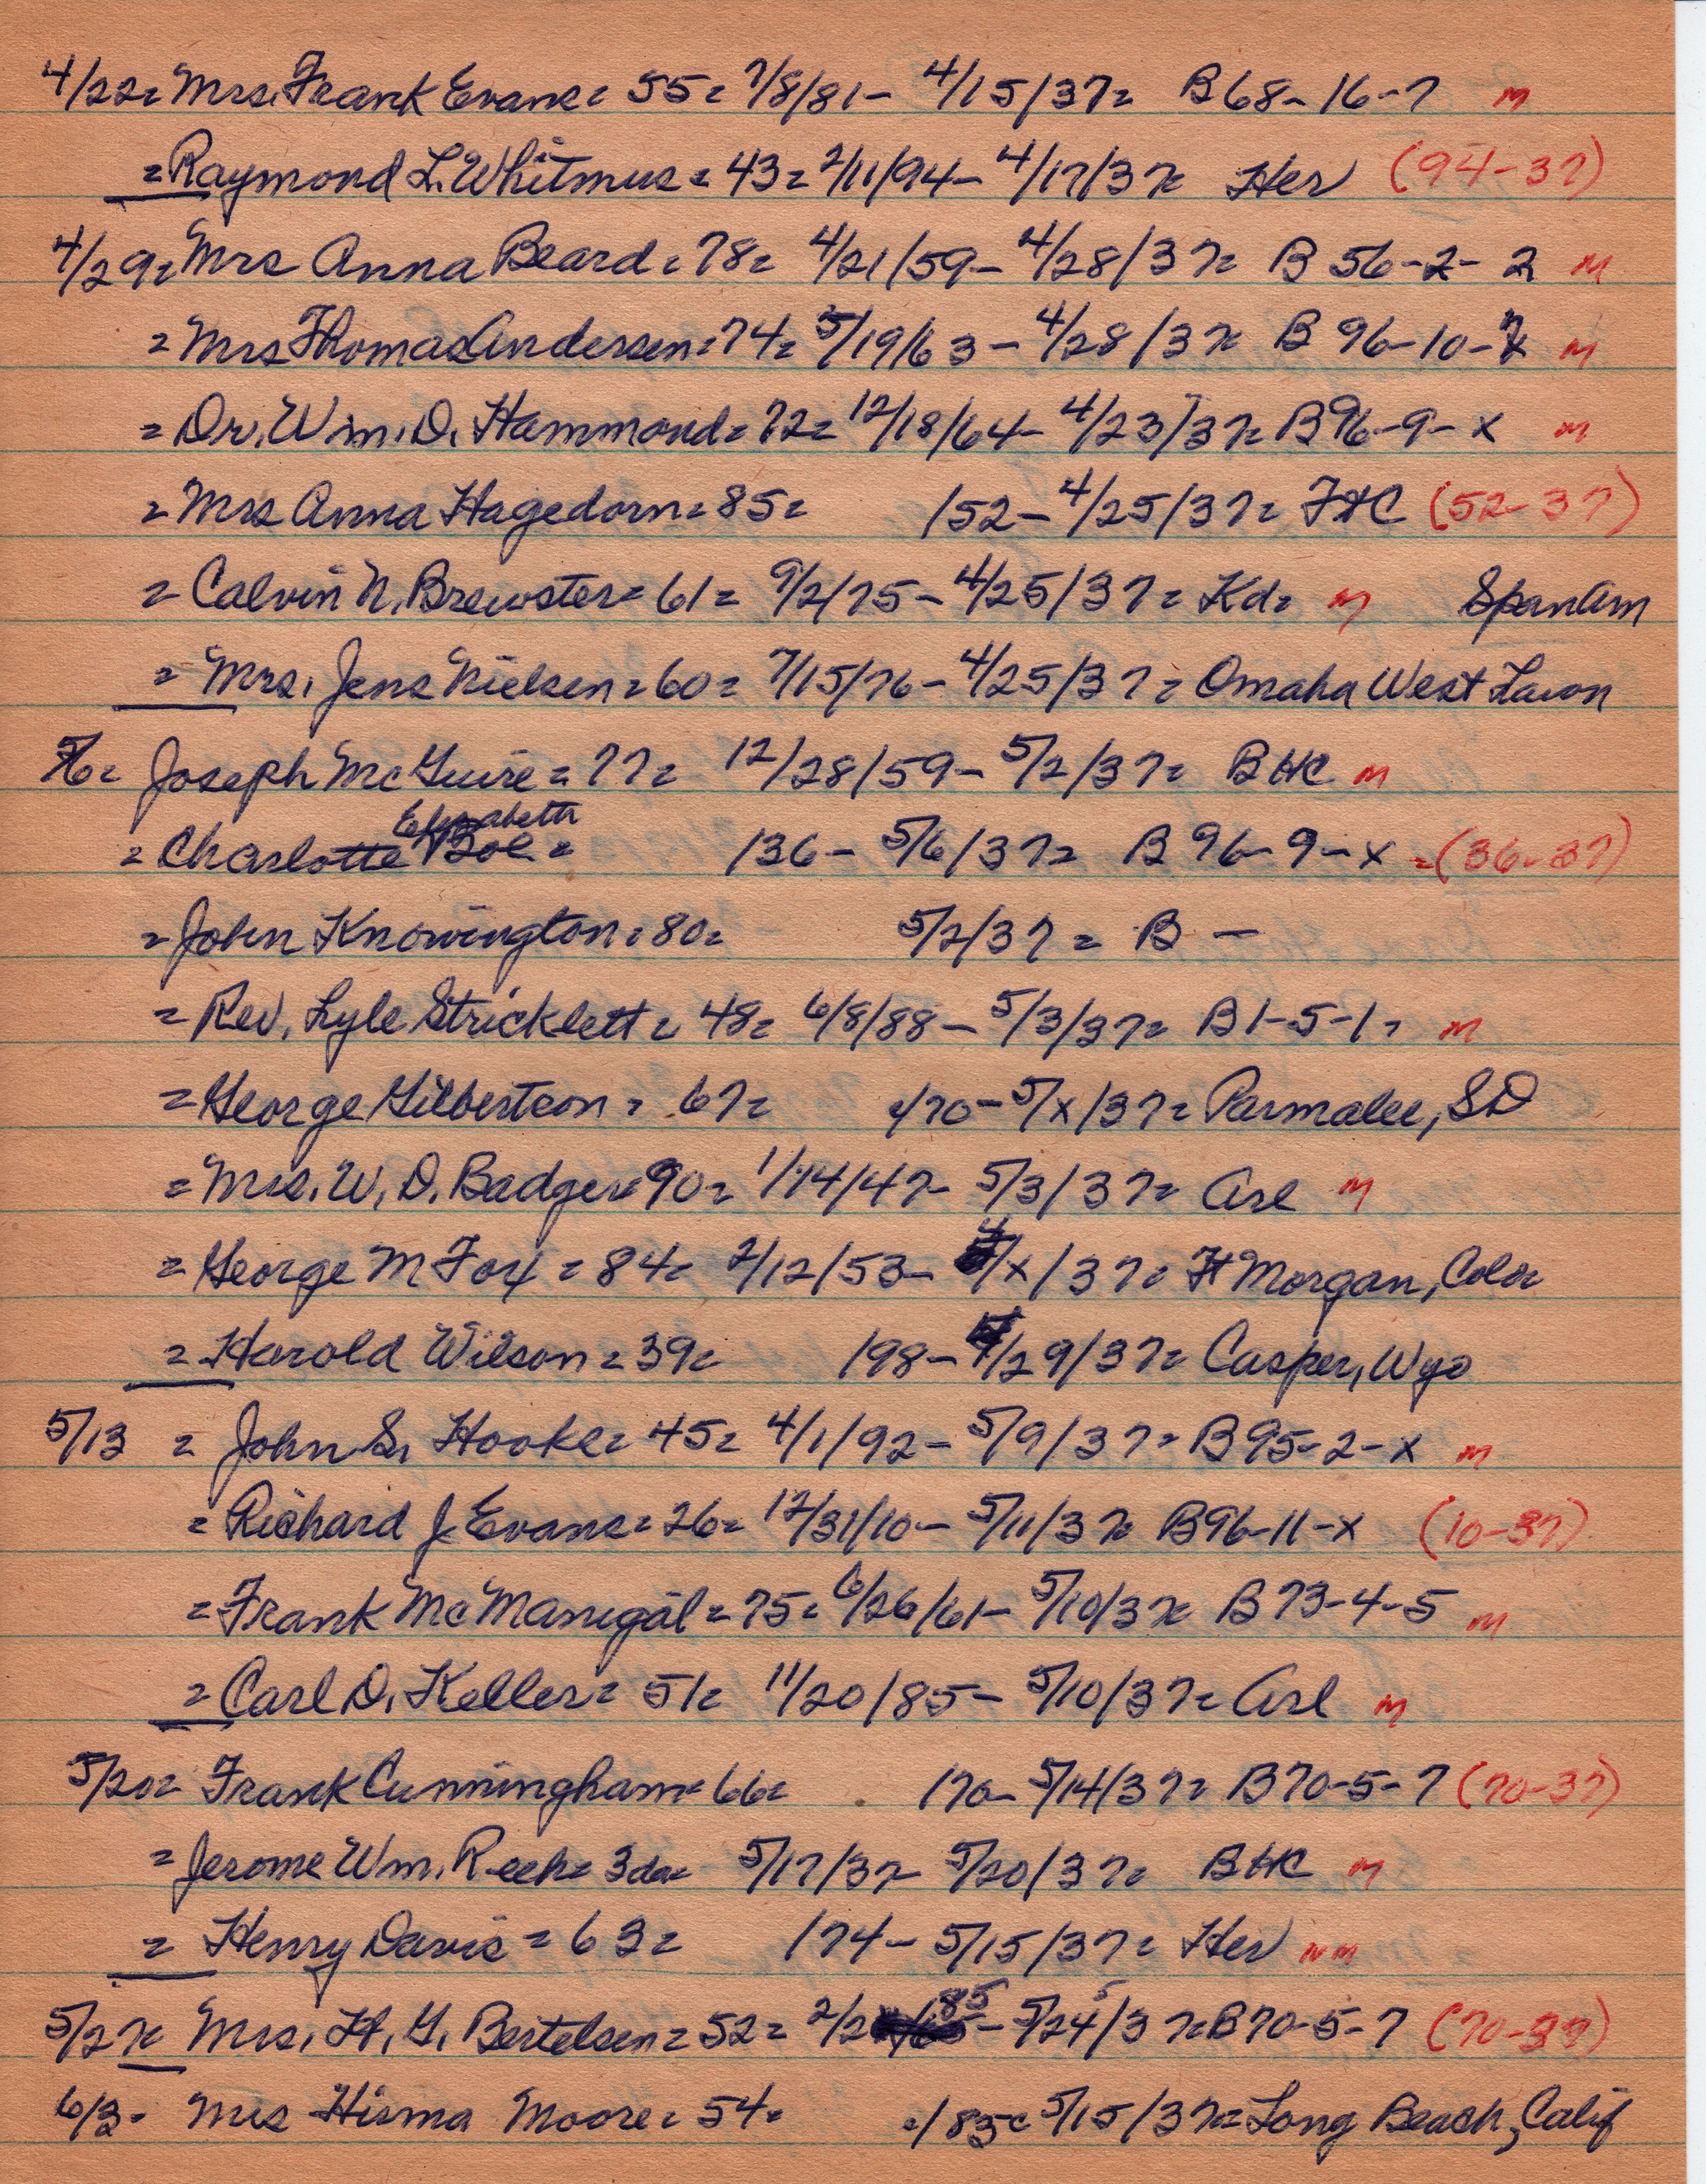 4/22= Mrs. Frank Evans= 55= 7/8/81- 4/15/37= B68-16-7 m
=Raymond L. Whitmus= 43= 2/11/94- 4/17/37= Her (94-37)
4/29= Mrs Anna Beard= 78= 4/21/59- 4/28/37= B 56-2-2 m
=Mrs Thomas Andersen= 74= 5/19/63- 4/28/37= B 96-10- m
=Dr. Wm. D. Hammond= 72= 12/18/64- 4/23/37= B96-9-x m
=Mrs Anna Hagedorn= 85= /52- 4/25/37= FHC (52-37)
= Calvin N. Brewster= 61= 9/2/75- 4/25/37= Kd= m SpanAm
= Mrs. Jens Nielsen= 60= 7/15/76- 4/25/37= Omaha West Lawn
5/6= Joseph McGuire= 77= 12/28/59- 5/2/37= BHC m
Elizabeth
= Charlotte Boe= /36- 5/6/37= B 96-9-x =(36-37)
=John Knowington= 80= 5/2/37= B -
= Rev. Lyle Stricklett= 48= 6/8/88- 5/3/37= B1-5-1= m
=George Gilbertson= 67= /70- 5/x/37= Parmalee, SD
=Mrs. W. D. Badger= 90= 1/14/47- 5/3/37= Arl m
=George M Fox= 84= 2/12/53- 4/x/37= Ft Morgan, Colo=
=Harold Wilson= 39= /98- 4/29/37= Casper, Wyo
5/13 = John S. Hooke= 45= 4/1/92- 5/9/37= B95-2-x m
=Richard J. Evans= 26= 12/31/10- 5/11/37= B96-11-x (10-37)
=Frank McManigal= 75= 6/26/61- 5/10/37= B73-4-5 m
= Carl D. Keller= 51= 11/20/85- 5/10/37= Arl m
5/20= Frank Cunningham= 66= /70- 5/14/37= B70-5-7 (70-37)
=Jerome Wm. Reeh= 3da= 5/17/37- 5/20/37= BHC m
= Henry Davis= 63= /74- 5/15/37= Her nm
5/27= Mrs. H. G. Bertelsen= 52= 2/2 85- 5/24/37=B70-5-7 (70-37)
6/3= Mrs Hirma Moore= 54= /83= 5/15/37= Long Beach, Calif